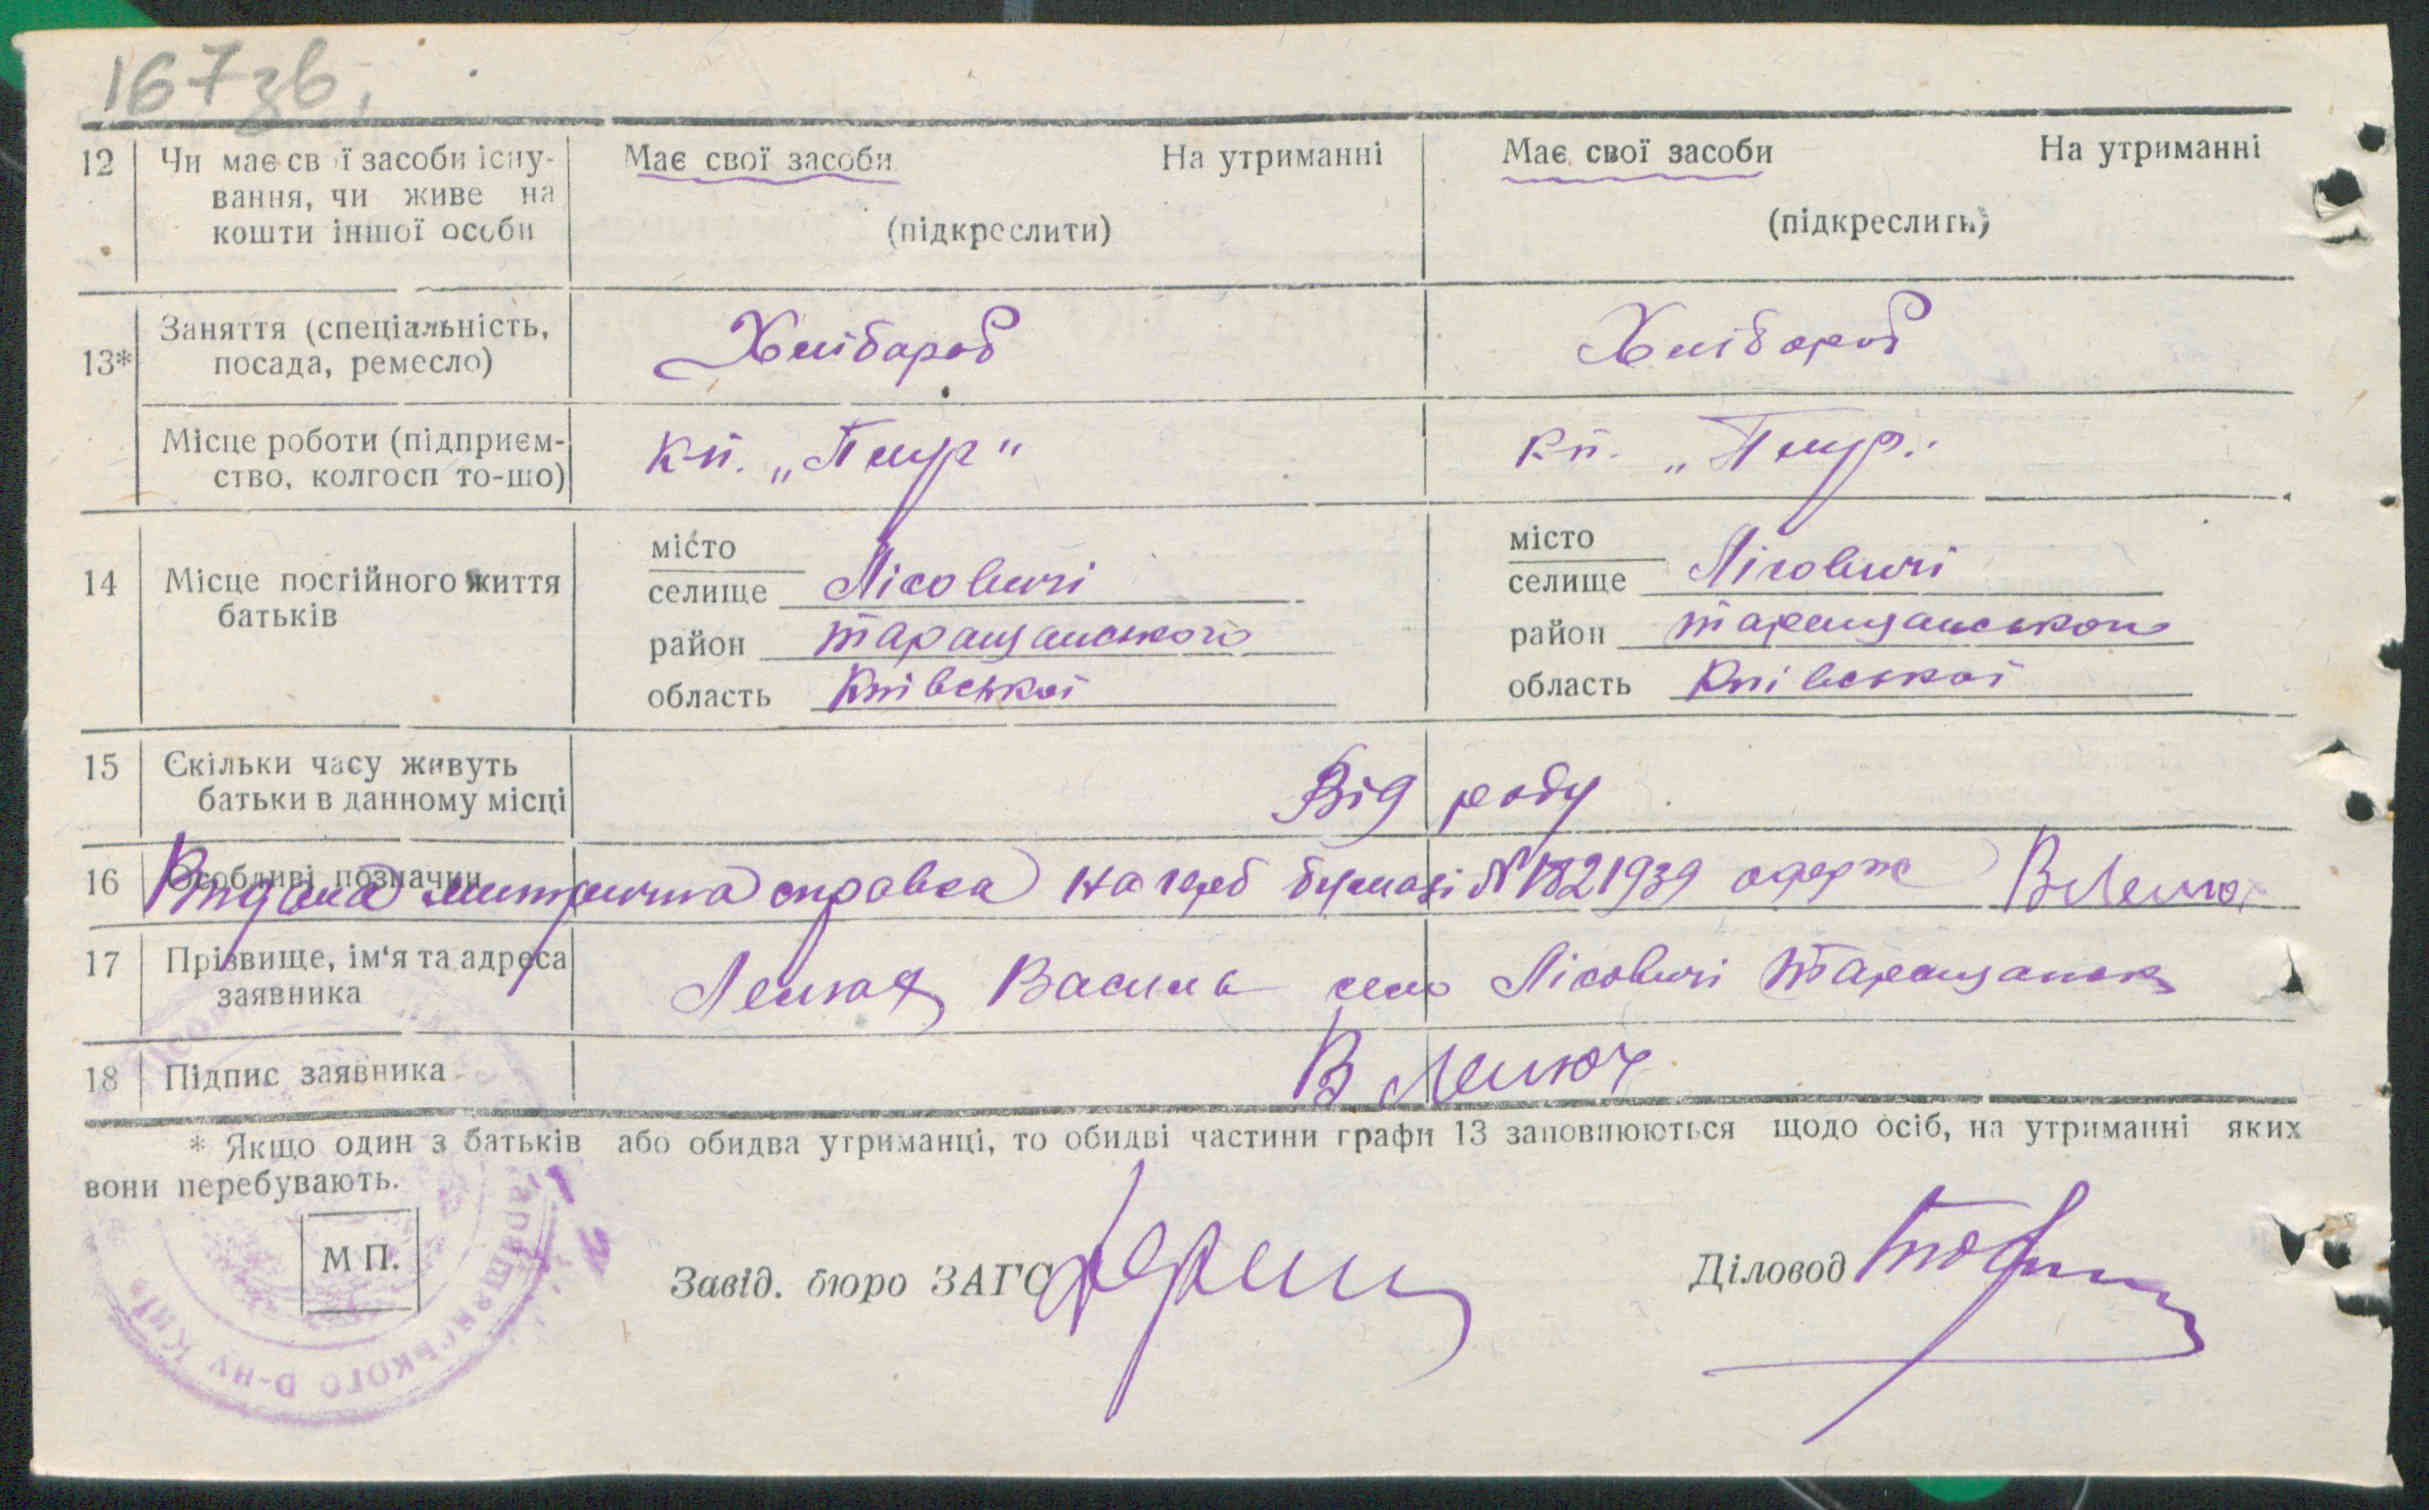 167зв.
12 Чи має свої засоби існу- Має свої засоби На утриманні Має свої засоби На утриманні
вання, чи живе на
кошти іншої особи (підкреслити) (підкреслить)
Заняття (спеціальність, Хлібароб Хлібароб
13* посада, ремесло)
Місце роботи (підприєм- кп. „ кп. „
ство, колгосп то-що)
місто місто
14 Місце постійного життя селище Лісовичі селище Лісовичі
батьків район таращанського район таращанського
область Київської область Київської
15 Скільки часу живуть Від роду
батьки в данному місці
16 Особливі позначки
Видана метрична справка на герб бумазі № 1821939 одерж
17 Прізвище, ім'я та адреса Василь село Лісовичі Таращанськ
заявника
18 Підпис заявника В
* Якщо один з батьків або обидва утриманці, то обидві частини графи 13 заповнюються щодо осіб, на утриманні яких
вони перебувають.
М П.
Завід. бюро ЗАГС Діловод
Таращанського р-ну